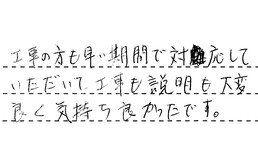 工事の方も早い期間で対応して
いただいて工事も説明も大変
良く気持ち良かったです。